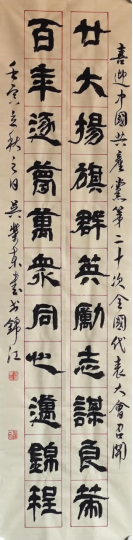 喜迎中國共產黨第二十次全國代表大會召開
廿大揚旗群英勵志謀良策
百年逐夢萬眾同心邁錦程
壬寅立秋之日吳業東書於錦江